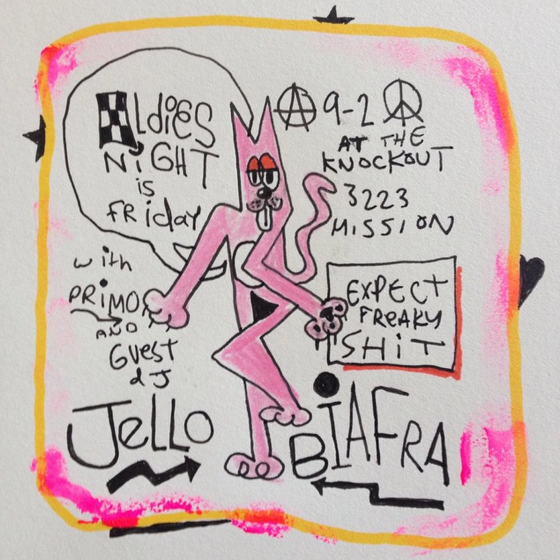 OLdiES
NiGHT
is
FRiday
9-2
AT THE
KNOCKOUT
3223
MISSION
with
PRiMO
AND
GUEST
dJ
EXPECT
FREAKY
SHiT
JELLO
BIAFRA